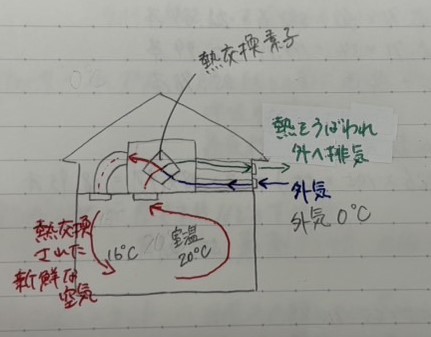 熱交換素子
熱をうばわれ
外へ排気
外気
外気 0℃
熱交換
された
新鮮な
空気
16℃
室温
20℃